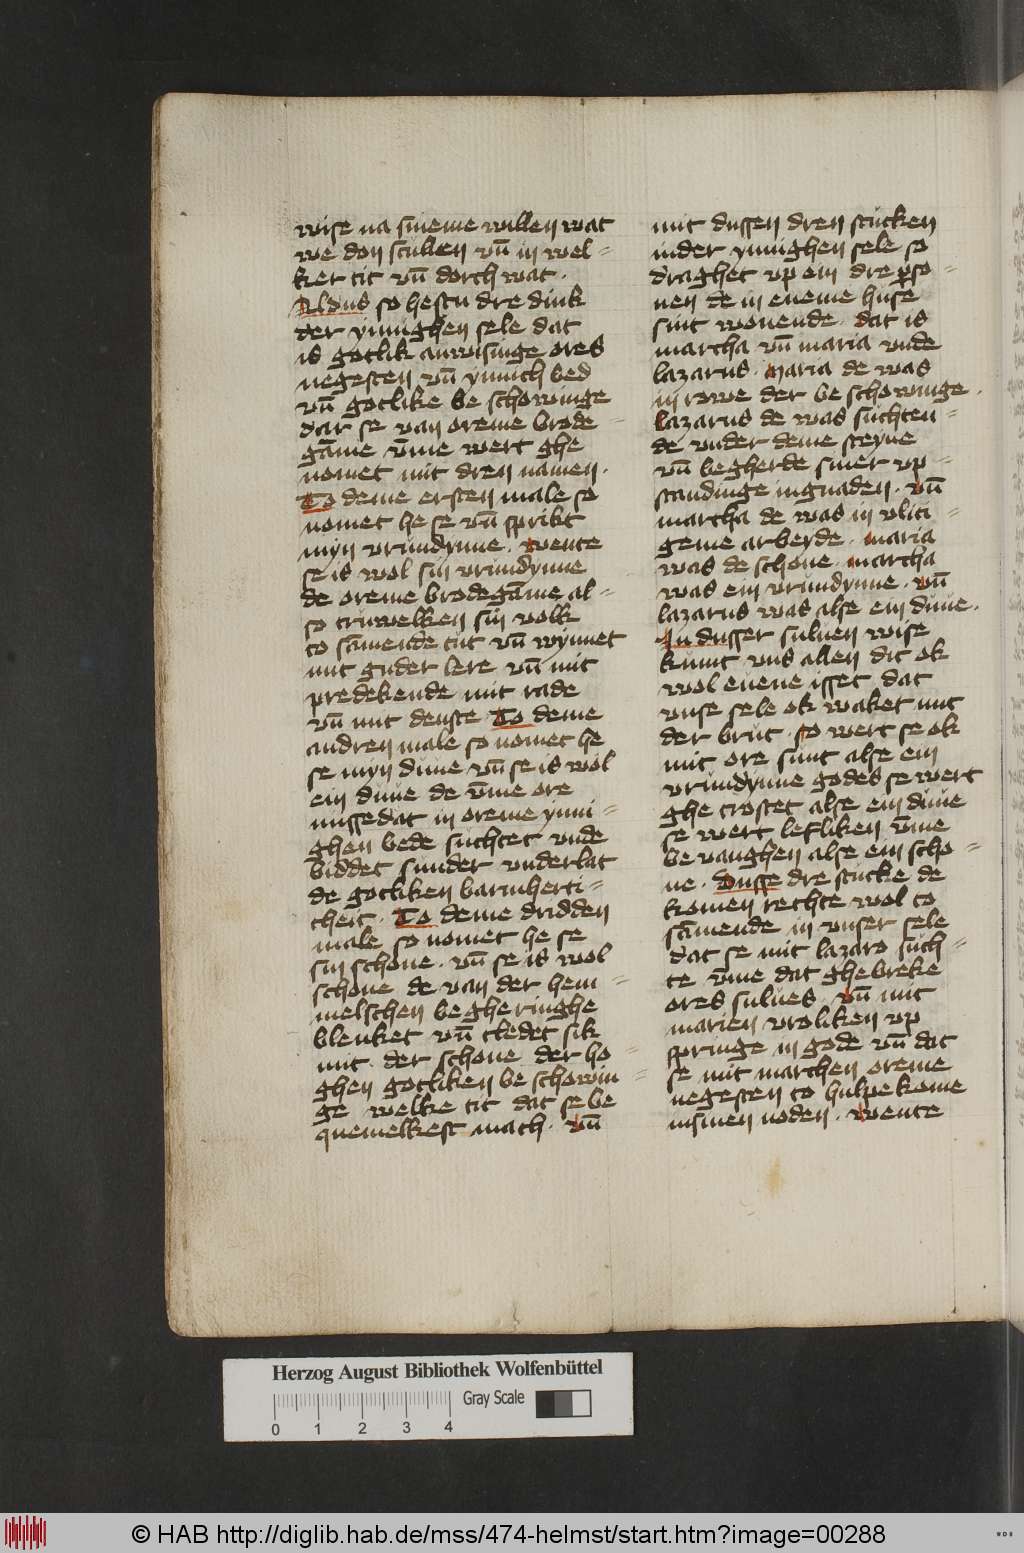 wise na sineme willen wat
we don scullen vn̄ in wel-
ker tit vn̄ dorch wat ·
Aldus so hestu dre dink
der ynnighen sele dat
is gotlik anwisinge ores
negesten vn̄ ynnich bed
vn̄ gotlike be schowinge
dar se van oreme brode-
gāme v̄me wert ghe
nomet mit dren namen ·
To deme ersten male so
nomet he se vn̄ sprikt
myn vrundynne · wente
se is wol sin vrundynne
de oreme brodegāme al-
so truwelken sin volk
to sāmende tut vn̄ wynnet
mit guder lere vn̄ mit
predekende mit rade
vn̄ mit denste To deme
andren male so nomet he
se myn duue vn̄ se is wol
ein duue de v̄me ore
missedat in oreme ynni-
ghen bede suchtet vnde
biddet sunder vnderlat
de gotliken barmherti-
cheit · To deme dridden
male so nomet he se
sin schone · vn̄ se is wol
schone de van der hem-
melschen be gheringhe
blenket vn̄ cledet sik
mit der schone der ho-
ghen gotliken be schowin-
ge welke tit dat se be
quemelkest mach · vn̄
mit dussen dren stucken
in der ynnighen sele so
draghet vp ein dre p̱so-
nen de in eneme huse
sint wonende · dat is
martha vn̄ maria vnde
lazarus · maria de was
in rowe der be schowinge ·
lazarus de was suchten-
de vnder deme steyne
vn̄ begherde siner vp-
standinge in gnaden · vn̄
martha de was in vliti-
geme arbeyde · maria
was de schone · martha
was ein vrundynne · vn̄
lazarus was alse ein duue ·
In dusser suluen wise
kumt vns allen dit ok
wol euene isset dat
vnse sele ok waket mit
der brut · so wert se ok
mit ore sunt alse ein
vrundynne godes se wert
ghe trostet alse ein duue
se wert lefliken v̄me
be vanghen alse ein scho-
ne · Dusse dre stucke de
komen rechte wol to
sāmende in vnser sele
dat se mit lazaro such-
te v̄me dat ghebreke
ores sulues · vn̄ mit
marien vroliken vp
springe in gode vn̄ dat
se mit marthen oreme
negesten to hulpe kome
in sinen noden · wente
Herzog August Bibliothek Wolfenbüttel
Gray Scale
0 1 2 3 4
© HAB http://diglib.hab.de/mss/474-helmst/start.htm?image=00288